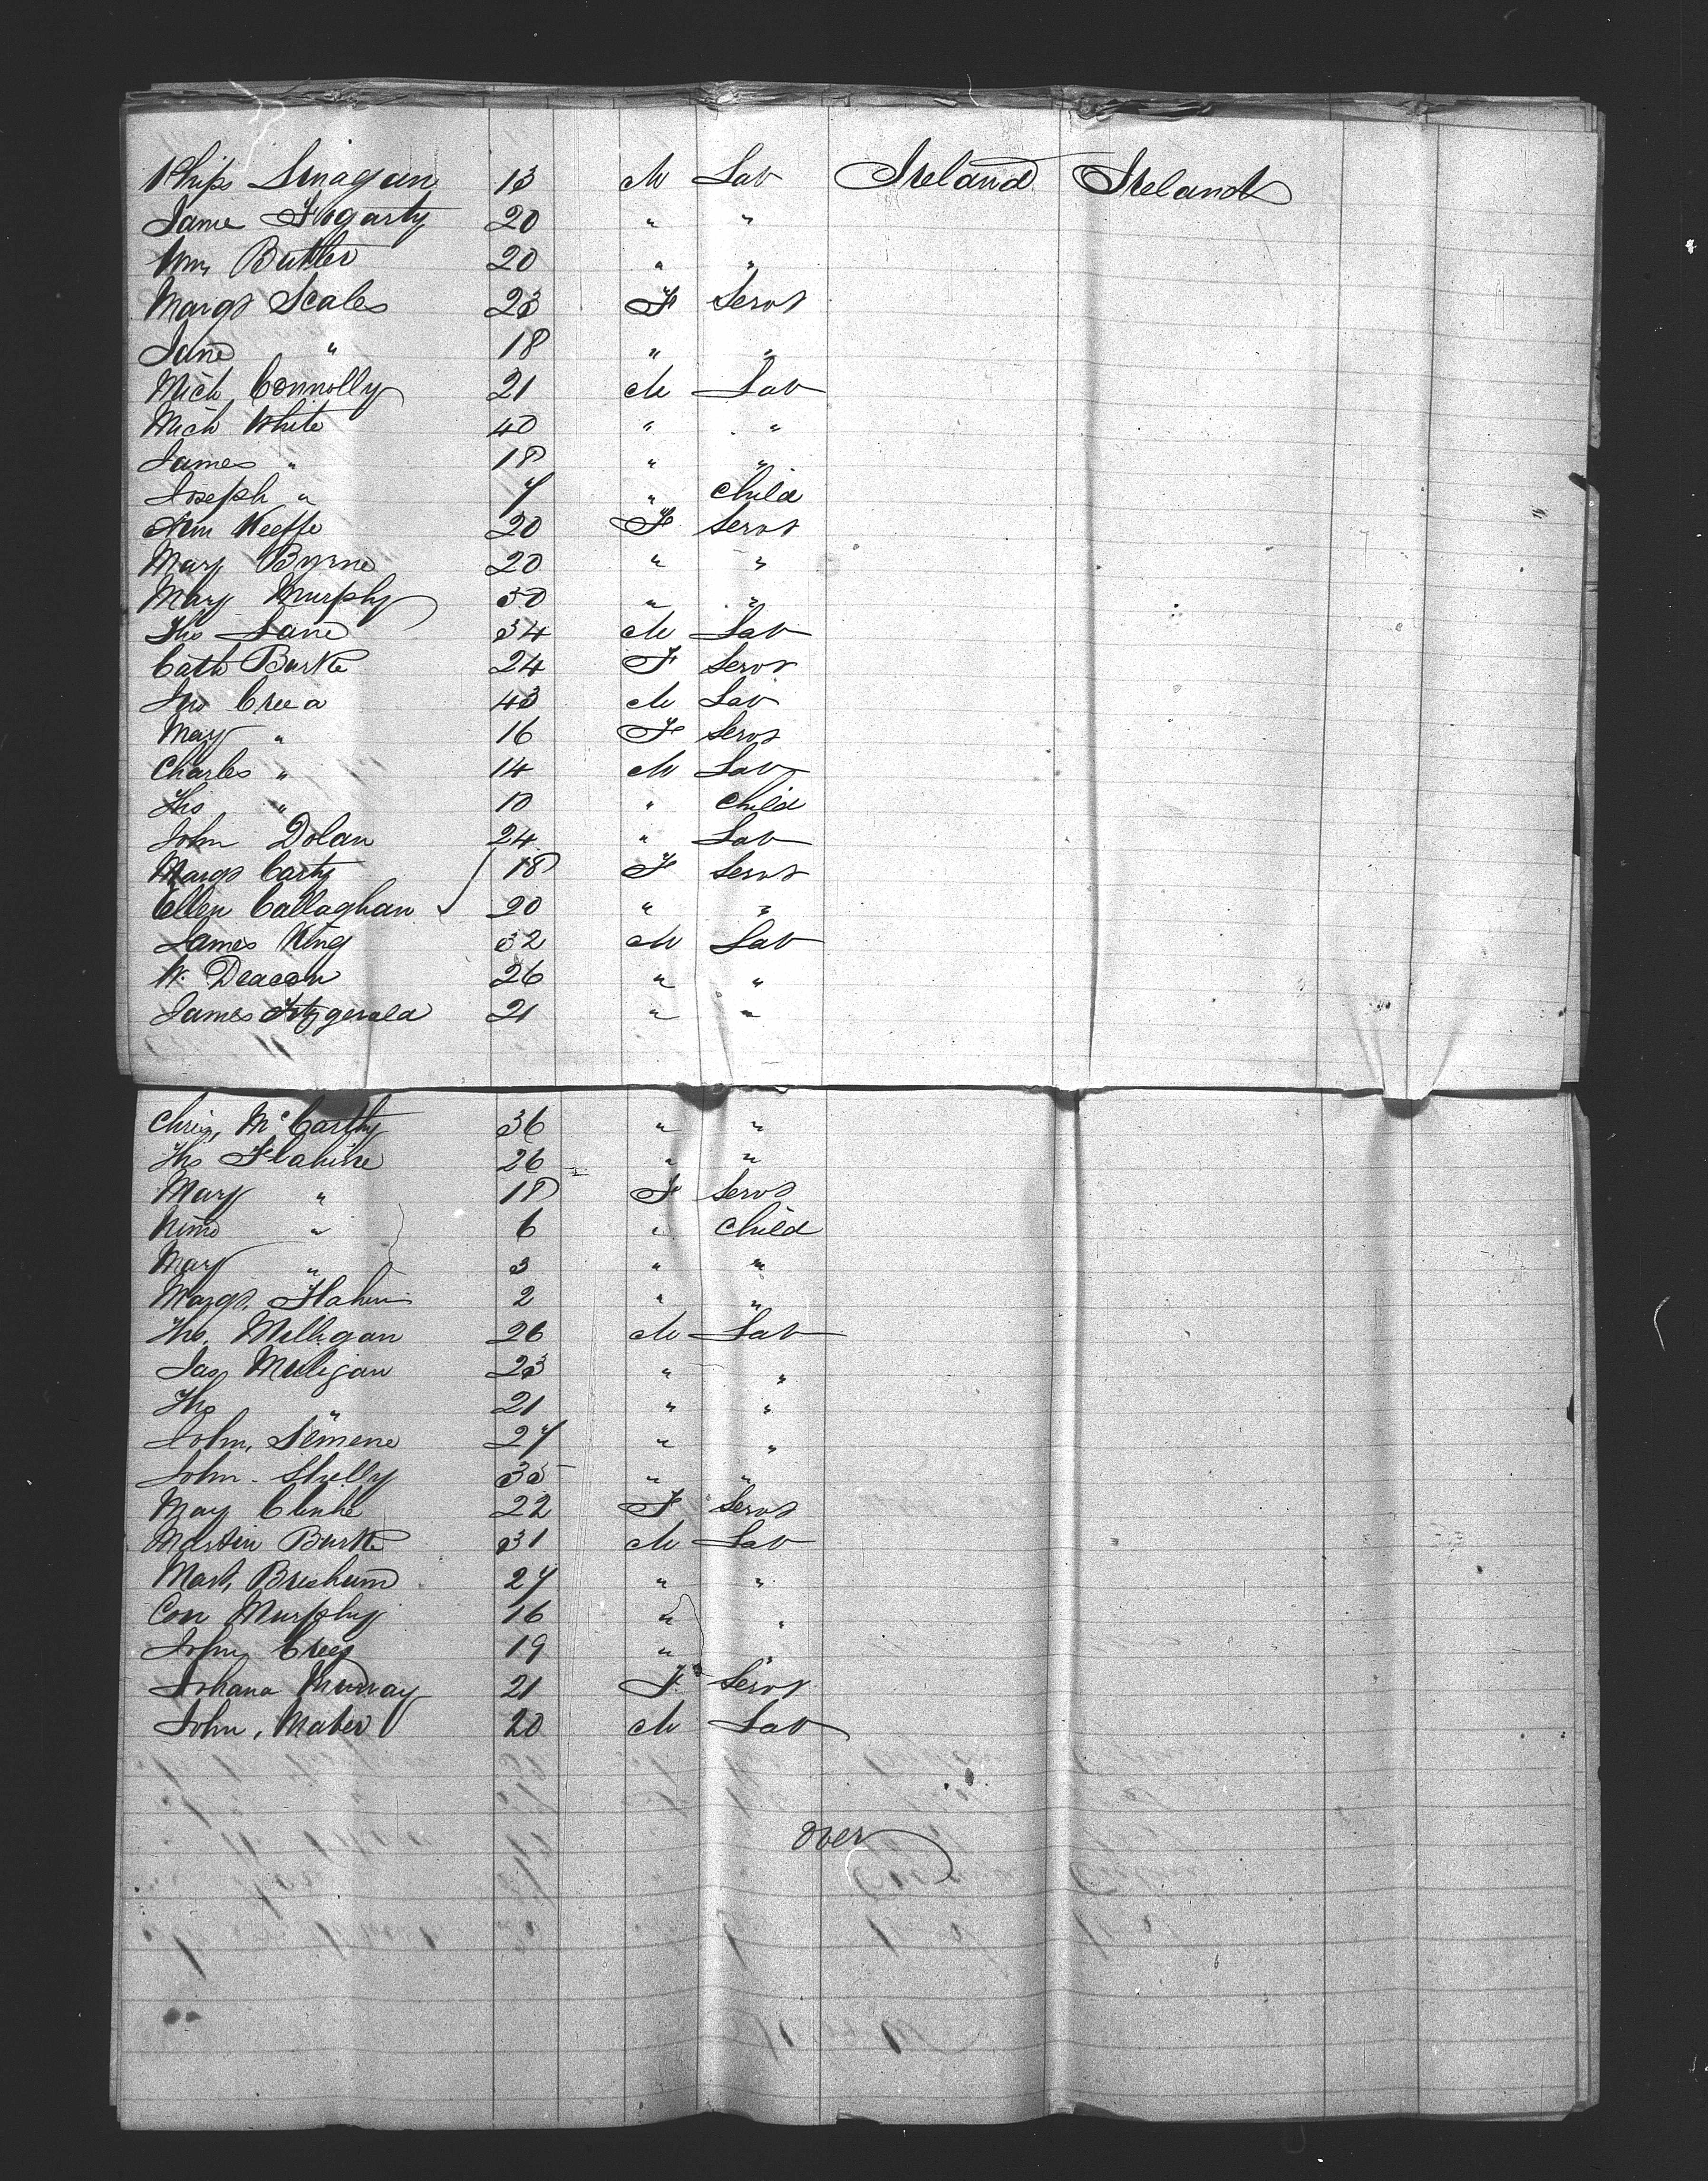 Phips Linagan 13 M Lab Ireland Ireland
Jame Fogarty 20 " "
Wm Butler 20 " "
Margt Scales 23 F Servt
Jane " 18 " "
Mich Connolly 21 M Lab
Mich White 40 " "
James " 18 " "
Joseph " 7 " Child
Ann Keeffe 20 F Servt
Mary Byrne 20 " "
Mary Murphy 30 " "
Ths Lane 34 M Lab
Cath Burke 24 F Servt
Jno Creea 43 M Lab
May " 16 F Servt
Charles " 14 M Lab
Ths " 10 " Child
John Dolan 24 " Lab
Margt Carty 18 F Servt
Ellen Callaghan 20 " "
James King 32 M Lab
W. Deacon 26 " "
James Fitzgerald 21 " "
Chris, McCarthy 36 " "
Ths Flahine 26 " "
Mary " 18 F Servt
" 6 " Child
Mary " 3 " "
Margt. Flahin 2 " "
Ths. Milligan 26 M Lab
Jas Mulligan 23 " "
Ths " 21 " "
John, Simene 27 " "
John - Shelly 35 " "
May 22 F Servt
Martin Burke 31 M Lab
Mart, 27 " "
Con Murphy 16 " "
John Creey 19 " "
Johana Murray 21 F Servt
John, Maher 20 M Lab
Over